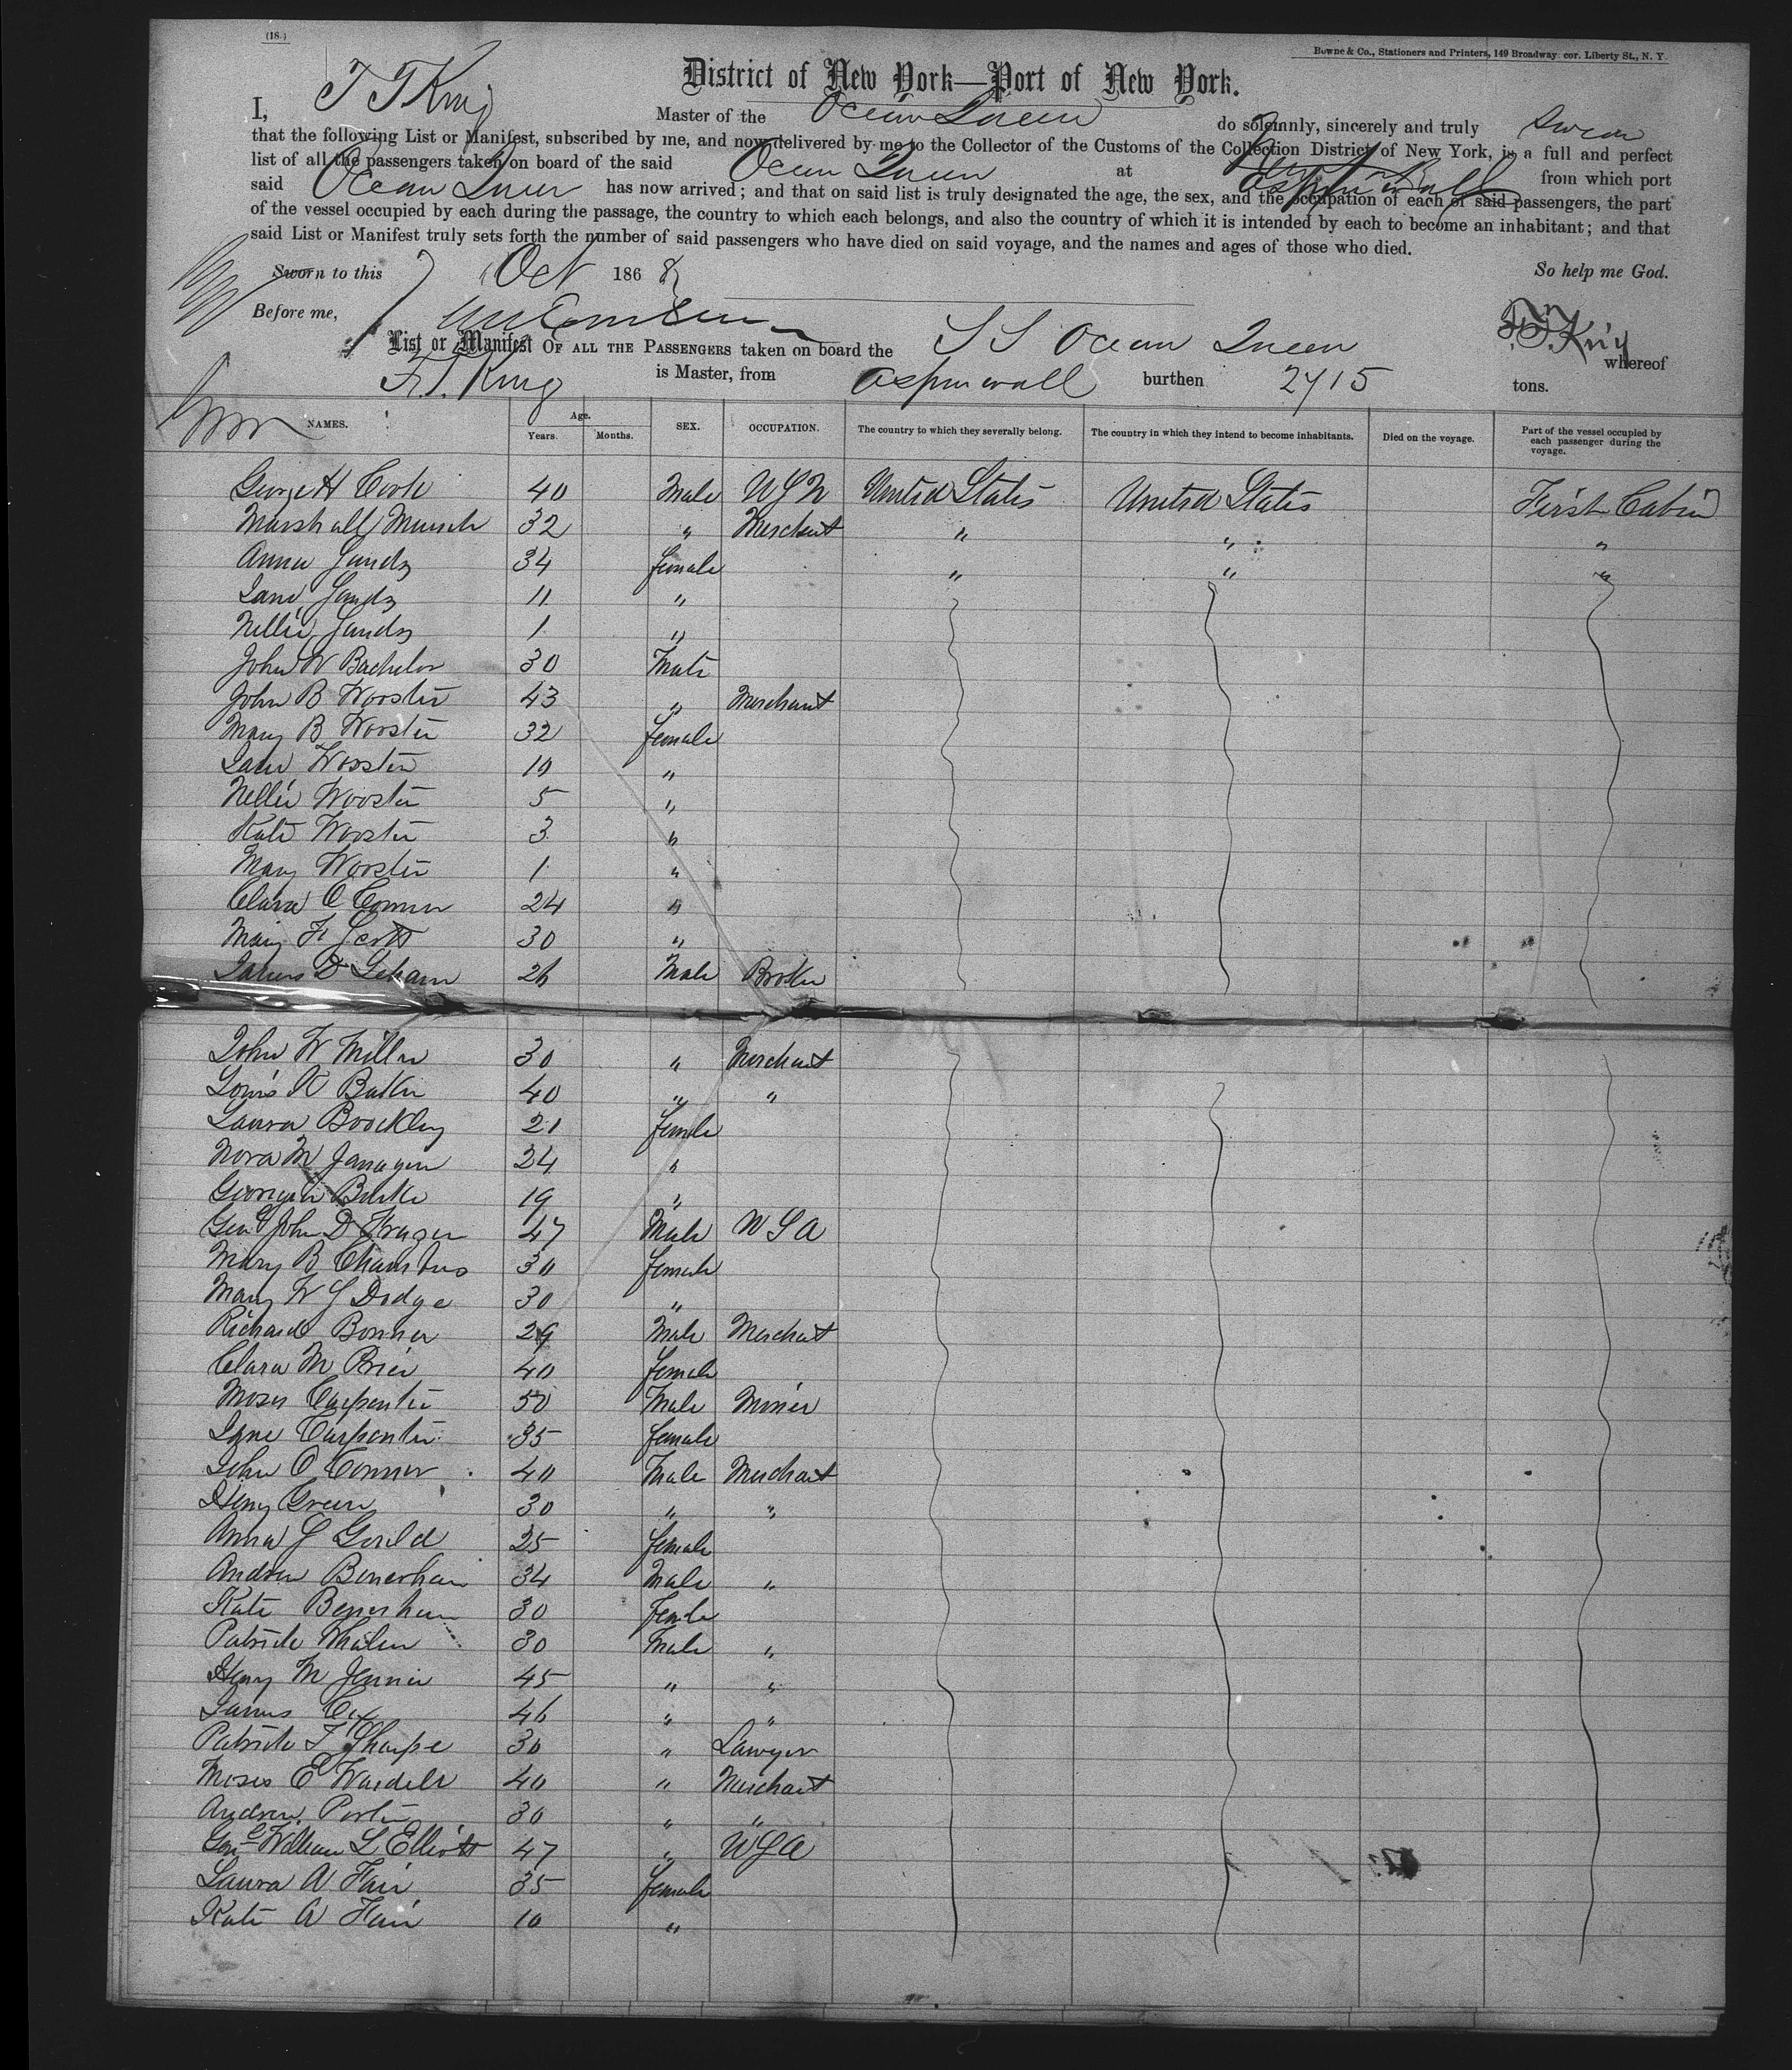 (18.)
Bowne & Co., Stationers and Printers, 149 Broadway cor. Liberty St., N. Y.
District of New York—Port of New York.
I, King Master of the Ocean Queen do solemnly, sincerely and truly swear
that the following List or Manifest, subscribed by me, and now delivered by me to the Collector of the Customs of the Collection District of New York, is a full and perfect
list of all the passengers taken on board of the said Ocean Queen at Aspinwall from which port
said Ocean Queen has now arrived; and that on said list is truly designated the age, the sex, and the occupation of each of said passengers, the part
of the vessel occupied by each during the passage, the country to which each belongs, and also the country of which it is intended by each to become an inhabitant; and that
said List or Manifest truly sets forth the number of said passengers who have died on said voyage, and the names and ages of those who died.
Sworn to this 7 Oct 1868 So help me God.
Before me, King
List or Manifest OF ALL THE PASSENGERS taken on board the S S Ocean Queen whereof
King is Master, from Aspinwall burthen 2715 tons.
NAMES. Age. Years. Months. SEX. OCCUPATION. The country to which they severally belong. The country in which they intend to become inhabitants. Died on the voyage. Part of the vessel occupied by each passenger during the voyage.
George H Cook 40 Male USN United States United States First Cabin
Marshall 32 " Merchant " " "
Anna 34 female " " "
Jane 11 "
Nellie 1 "
John W Bachelor 30 Male
John B Wooster 43 " Merchant
Mary B Wooster 32 female
Jane Wooster 10 "
Nellie Wooster 5 "
Kate Wooster 3 "
Mary Wooster 1 "
Clara O Connor 24 "
Mary F Scott 30 "
James D 26 Male Broker
John W Miller 30 " Merchant
Louis Butler 40 " "
Laura 21 female
Nora M 24 "
Georgia Burke 19 "
Genl John D 47 Male USA
Mary B Chambers 30 female
Mary W S Dodge 30 "
Richard Bonner 29 Male Merchant
Clara M Price 40 female
Moses Carpenter 50 Male Miner
Jane Carpenter 35 female
John O Connor 40 Male Merchant
Henry Green 30 " "
Anna S Gould 25 female
Andrew 34 Male "
Kate 30 female
Patrick Whalen 30 Male "
Henry M 45 " "
James Cox 46 " "
Patrick F Sharpe 30 " Lawyer
Moses E Wardell 40 " Merchant
Andrew Porter 30 " "
Genl William L Elliott 47 " USA
Laura A Fair 35 female
Kate A Fair 10 "